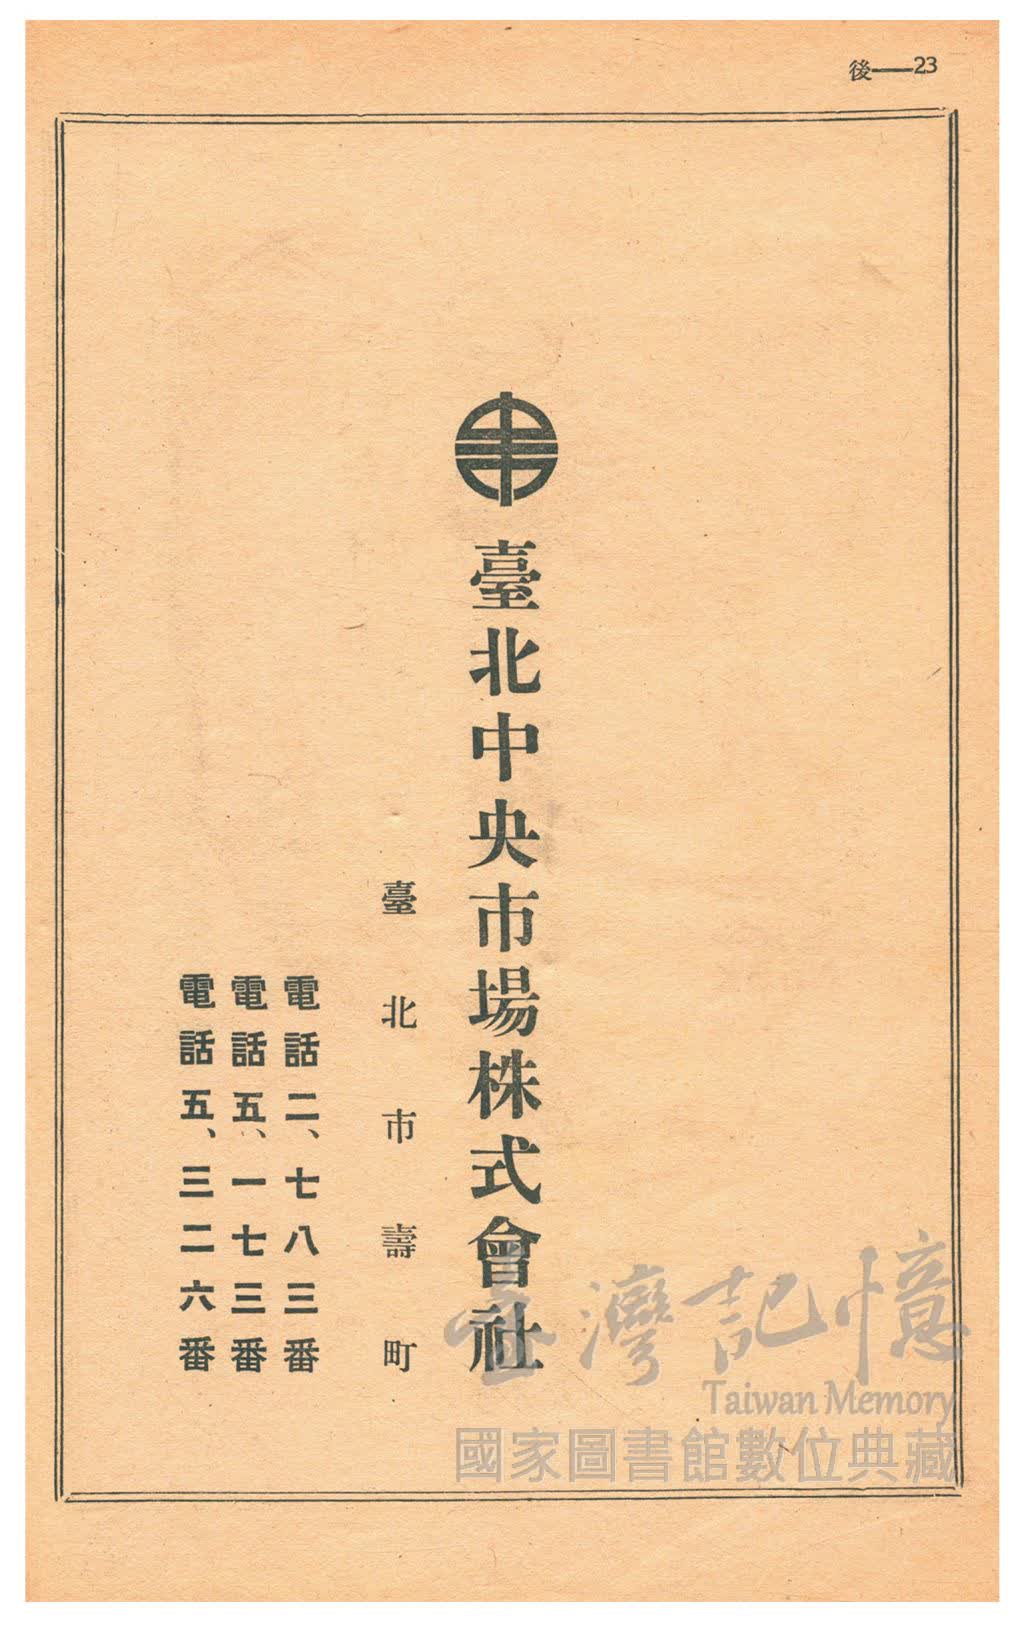 後——23
臺北中央市場株式會社
臺北市壽町
電話二、七八三番
電話五、一七三番
電話五、三二六番
臺灣記憶
Taiwan Memory
國家圖書館數位典藏